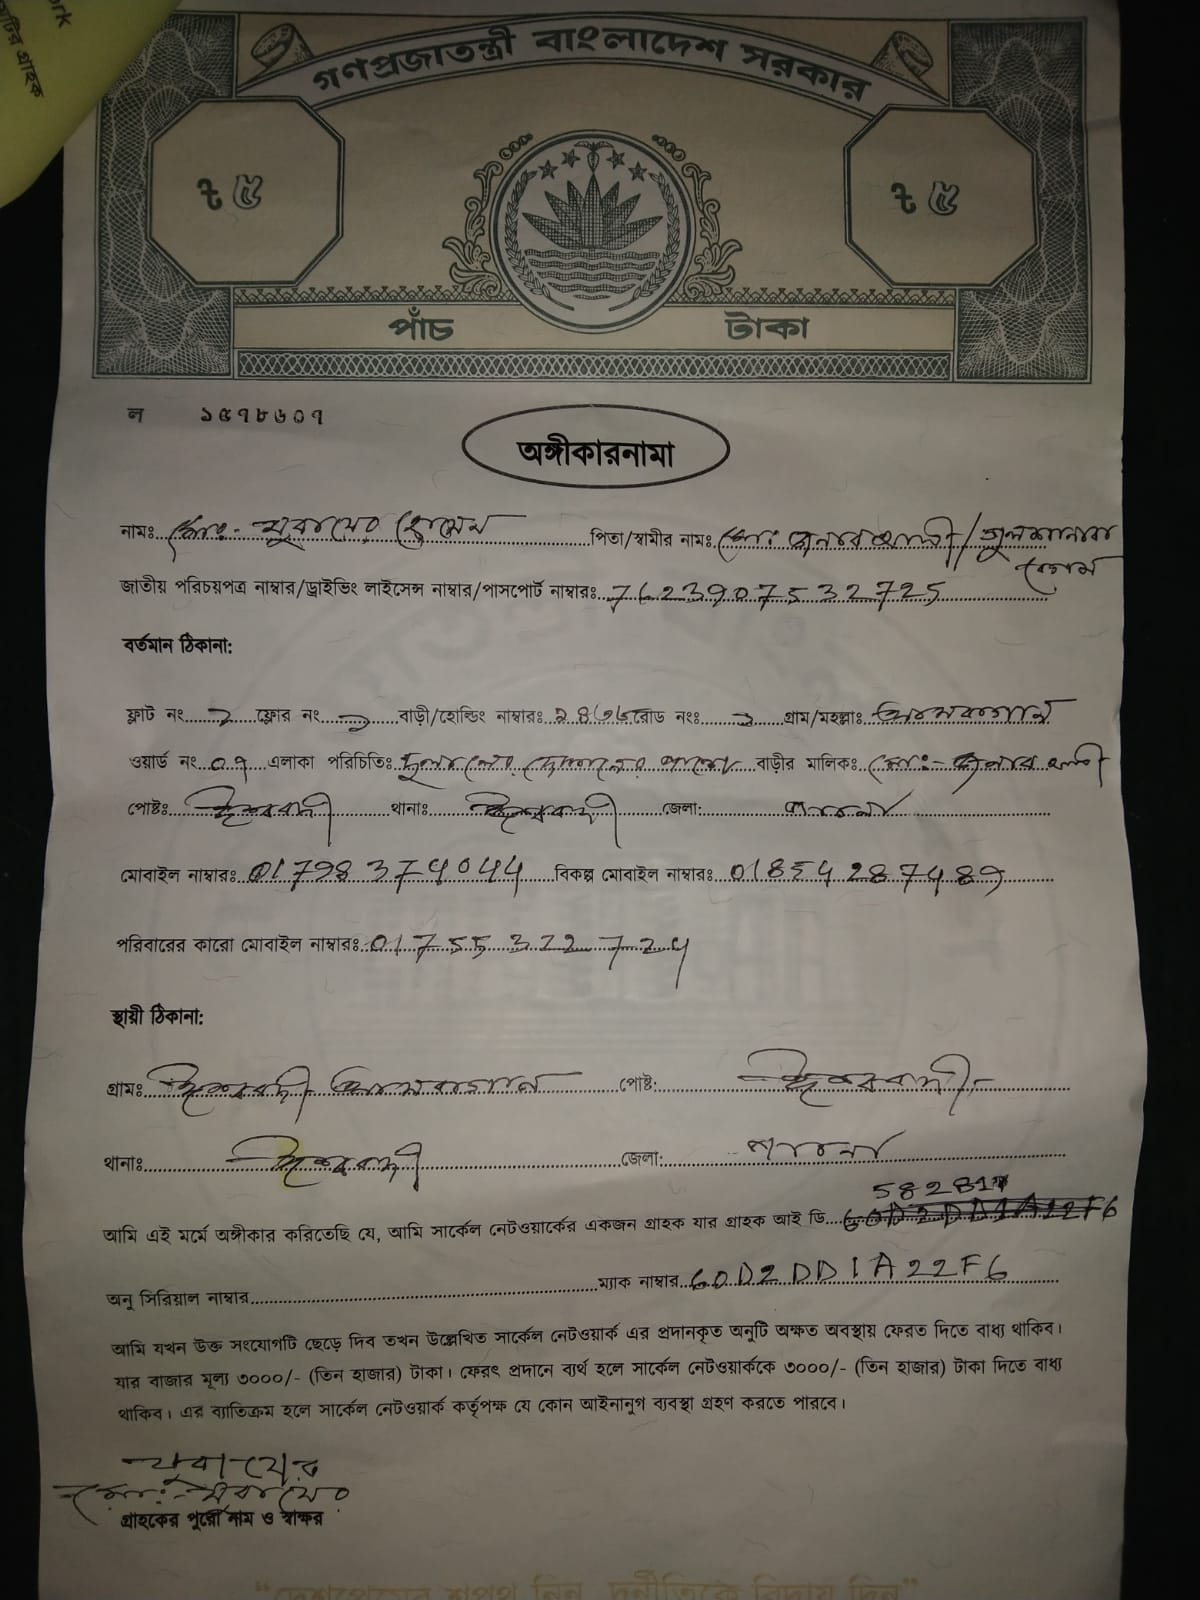 র্ক
গণপ্রজাতন্ত্রী বাংলাদেশ সরকার
৳ ৫
৳ ৫
পাঁচ টাকা
ল ১৫৭৮৬০৭
অঙ্গীকারনামা
নামঃ মোঃ- যুবায়ের হুসেন পিতা/স্বামীর নামঃ মোঃ জনাব আলী/গুলশানারা
বেগম
জাতীয় পরিচয়পত্র নাম্বার/ড্রাইভিং লাইসেন্স নাম্বার/পাসপোর্ট নাম্বারঃ 7623907532725
বর্তমান ঠিকানা:
ফ্লাট নং ফ্লোর নং বাড়ী/হোল্ডিং নাম্বারঃ রোড নংঃ গ্রাম/মহল্লাঃ আমবাগান
ওয়ার্ড নং ০৭ এলাকা পরিচিতিঃ দুলালের দোকানের পাশে বাড়ীর মালিকঃ মোঃ- জনাব আলী
পোষ্টঃ ঈশ্বরদী থানাঃ ঈশ্বরদী জেলা: পাবনা
মোবাইল নাম্বারঃ 01798374044 বিকল্প মোবাইল নাম্বারঃ 01854287489
পরিবারের কারো মোবাইল নাম্বারঃ 01755322724
স্থায়ী ঠিকানা:
গ্রামঃ ঈশ্বরদী আমবাগান পোষ্ট: ঈশ্বরদী
থানাঃ ঈশ্বরদী জেলা: পাবনা
আমি এই মর্মে অঙ্গীকার করিতেছি যে, আমি সার্কেল নেটওয়ার্কের একজন গ্রাহক যার গ্রাহক আই ডি
অনু সিরিয়াল নাম্বার ম্যাক নাম্বার 60D2DD1A22F6
আমি যখন উক্ত সংযোগটি ছেড়ে দিব তখন উল্লেখিত সার্কেল নেটওয়ার্ক এর প্রদানকৃত অনুটি অক্ষত অবস্থায় ফেরত দিতে বাধ্য থাকিব।
যার বাজার মূল্য ৩০০০/- (তিন হাজার) টাকা। ফেরৎ প্রদানে ব্যর্থ হলে সার্কেল নেটওয়ার্ককে ৩০০০/- (তিন হাজার) টাকা দিতে বাধ্য
থাকিব। এর ব্যাতিক্রম হলে সার্কেল নেটওয়ার্ক কর্তৃপক্ষ যে কোন আইনানুগ ব্যবস্থা গ্রহণ করতে পারবে।
যুবায়ের
মোঃ- যুবায়ের
গ্রাহকের পুরো নাম ও স্বাক্ষর
“দেশপ্রেমের শপথ নিন, দুর্নীতিকে বিদায় দিন”